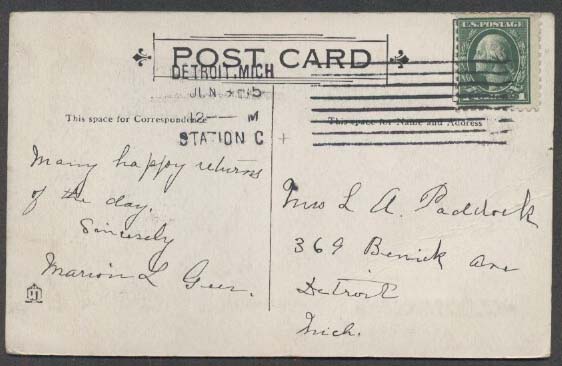 POST CARD
DETROIT, MICH
12— M
STATION C
U.S. POSTAGE
1
This space for Correspondence
This space for Name and Address
Many happy returns
of the day.
Sincerely
Marion L
Mrs L A. Paddock
369 Ave
Detroit
Mich.